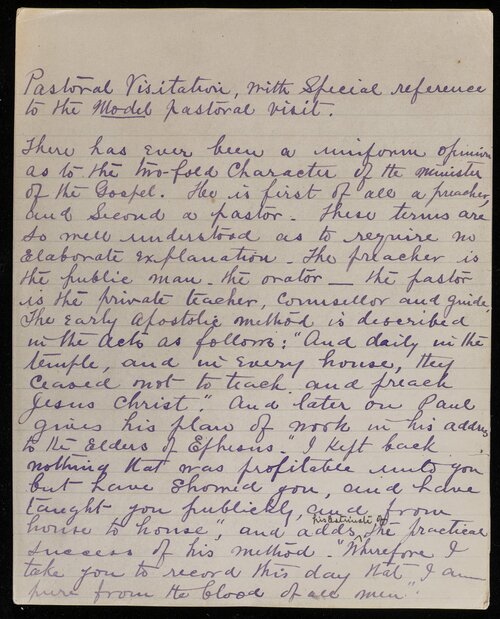 Pastoral Visitation, with Special reference
to the Model pastoral visit.
There has ever been a uniform opinion
as to the two-fold Character of the minister
of the Gospel. He is first of all a preacher,
and Second a pastor. These terms are
so well understood as to require no
Elaborate Explanation. The preacher is
the public man, the orator — the pastor
is the private teacher, Counsellor and guide.
The Early Apostolic method is described
in the Acts as follows: "And daily in the
temple, and in Every house, they
Ceased not to teach and preach
Jesus Christ." And later on Paul
gives his plan of work in his address
to the Elders of Ephesus. "I kept back
nothing that was profitable unto you
but have showed you, and have
taught you publickly, and from
his estimate of
house to house", and adds the practical
success of his method. "Wherefore I
take you to record this day that I am
pure from the blood of all men".